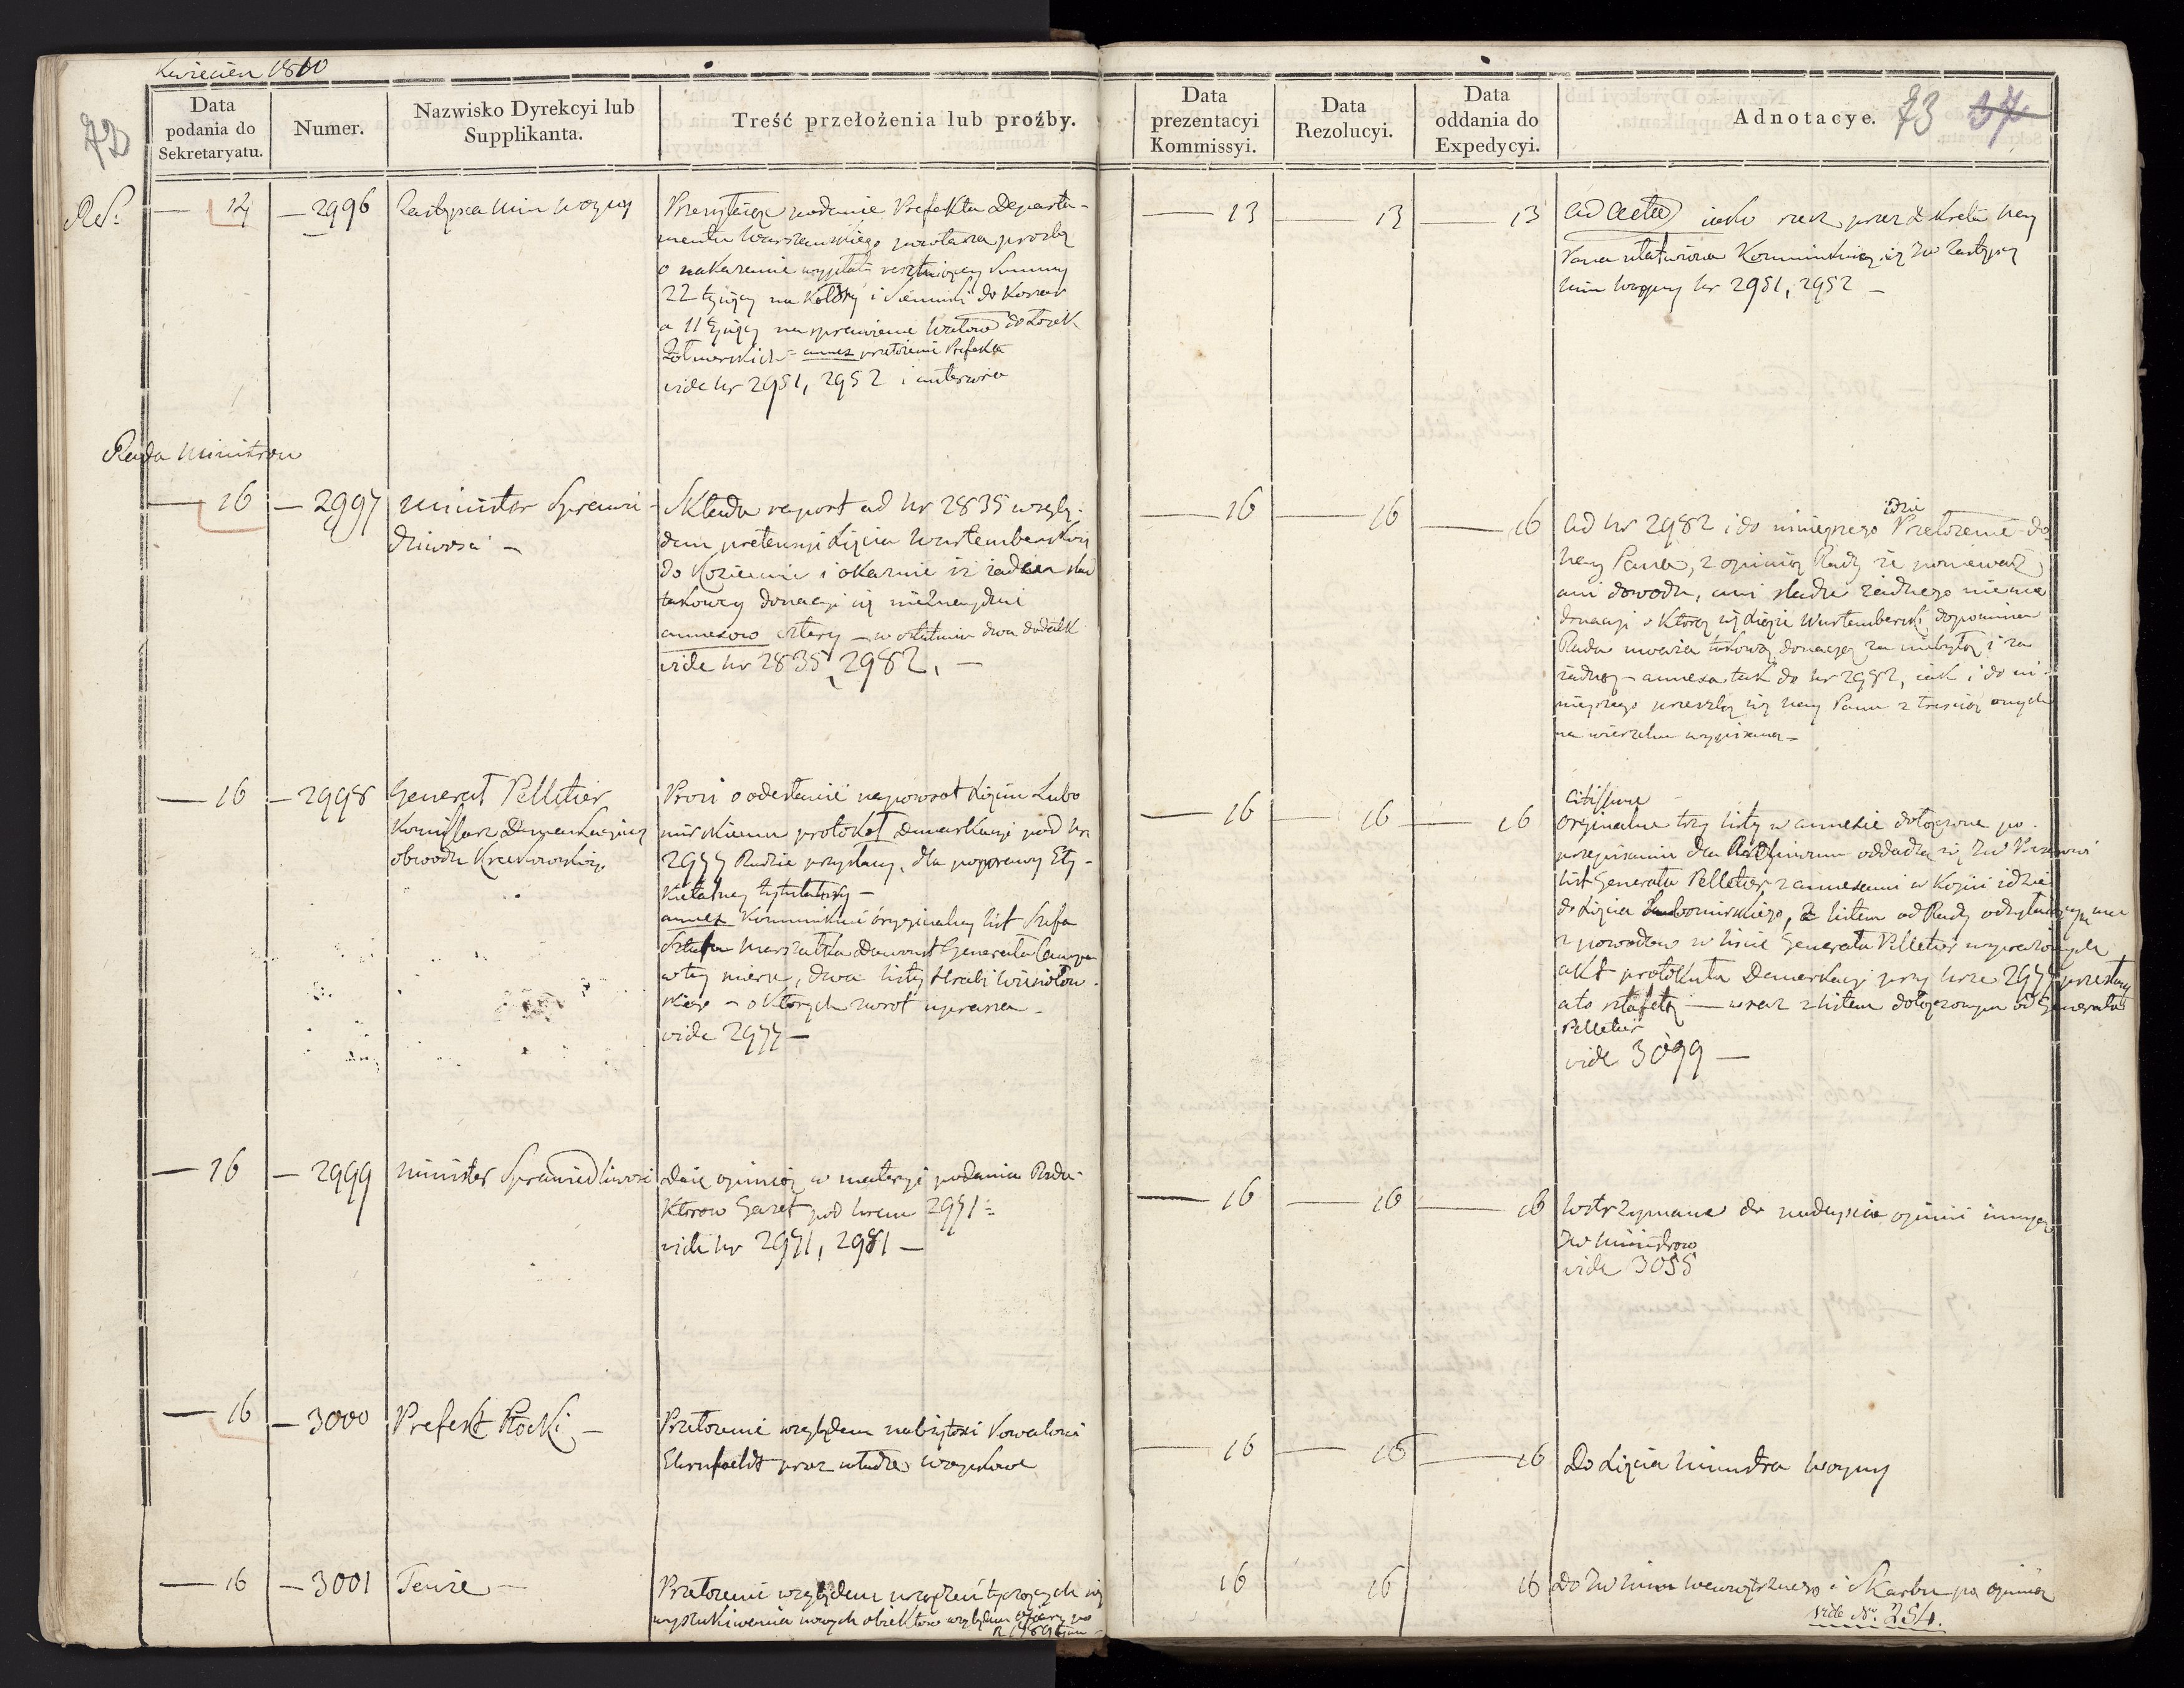 Kwiecień 1810
73
Data podania do Sekretaryatu.
Numer.
Nazwisko Dyrekcyi lub Supplikanta.
Treść przełożenia lub proźby.
Data prezentacyi Kommissyi.
Data Rezolucyi.
Data oddania do Expedycyi.
Adnotacye.
73 37
— 14
— 2996
Zastępca Min Woyny
Przesyłaiąc podanie Prefekta Departa-
mentu Warszawskiego powtarza prozbę
o nakazanie wypłaty resztuiącey Summy
22 tysięcy na Kołdry i Sienniki do Koszar
a 11 tysięcy na sprawienie do Łóżek
Żołnierskich = annex przełożenie Prefekta
vide Nr 2951, 2952 i anteriora
— 13
— 13
— 13
ad acta iako rzecz przez Dekreta Nay
Pana ułatwiona Kommunikuią się JW Zastępcy
Min Woyny Nr 2951, 2952 —
Rada Ministrow
— 16
— 2997
Minister Sprawie-
dliwosci —
Składa raport ad Nr 2835 wzglę-
dem pretensyi Xięcia Wurtemberskiey
do Kozienic i okazuie iż żaden slad
takowey donacyi się nieznayduie
annexow cztery — w ostatnim dwa dodatk
vide Nr 2835, 2982. —
— 16
— 16
— 16
idzie
ad Nr 2982 i do ninieyszego Przełożenie do
Nay Pana, z opinią Rady że ponieważ
ani dowodu, ani sladu żadnego niema
donacyi o Którą się Xiąże Wurtemberski dopomina
Rada uważa takową donacyą za niebyłą i za
żadną — annexa tak do Nr 2982, iak i do ni-
nieyszego przeszlą się Nay Panu z treścią onych
na wierzchu wypisaną —
— 16
— 2998
Generał Pelletier
Kommissarz Demarkacyiny
obwodu Krakowskiego
Prosi o odesłanie napowrot Xięciu Lubo
mirskiemu protokół Demarkacyi pod Nr
2977 Radzie przysłany, dla poprawy Ety-
kietalney tytulatury —
annex Kommunikuie oryginalny list Szefa
Sztabu Marszałka Davoust Generała
w tey mierze, dwa listy Hrabi
— o których zwrot uprasza —
vide 2977 —
— 16
— 16
— 16
citissime
Oryginalne trzy listy w annexie dołączone po
przepisaniu dla Rady oddadzą się JW Prezesowi
list Generała Pelletier z annexami w Kopii idzie
do Xięcia Lubomirskiego, z listem od Rady
z powodow w liscie Generała Pelletier wyrażonych
akt protokułu Demarkacyi przy Nrze 2977 przesłany
a to sztafetą — wraz z listem dołączonym od Generała
Pelletier
vide 3099 —
— 16
— 2999
Minister Sprawiedliwosci
Daie opinią w materyi podania Reda-
Ktorow Gazet pod Nrem 2971 =
vide Nr 2971, 2981 —
— 16
— 16
— 16
Wstrzymane do nadeyscia opinii innych
JW Ministrow
vide 3055
— 16
— 3000
Prefekt Płocki —
Przełożenie względem należytosci Kowalowi
przez władze woyskowe
— 16
— 16
— 16
Do Xięcia Ministra Woyny
— 16
— 3001
Tenże —
Przełożenie względem urządzeń tyczących się
wyszukiwania nowych obiektow względem
16
16
16
Do JW Minn Wewnętrznego i Skarbu po opinią
vide Nr. 254.